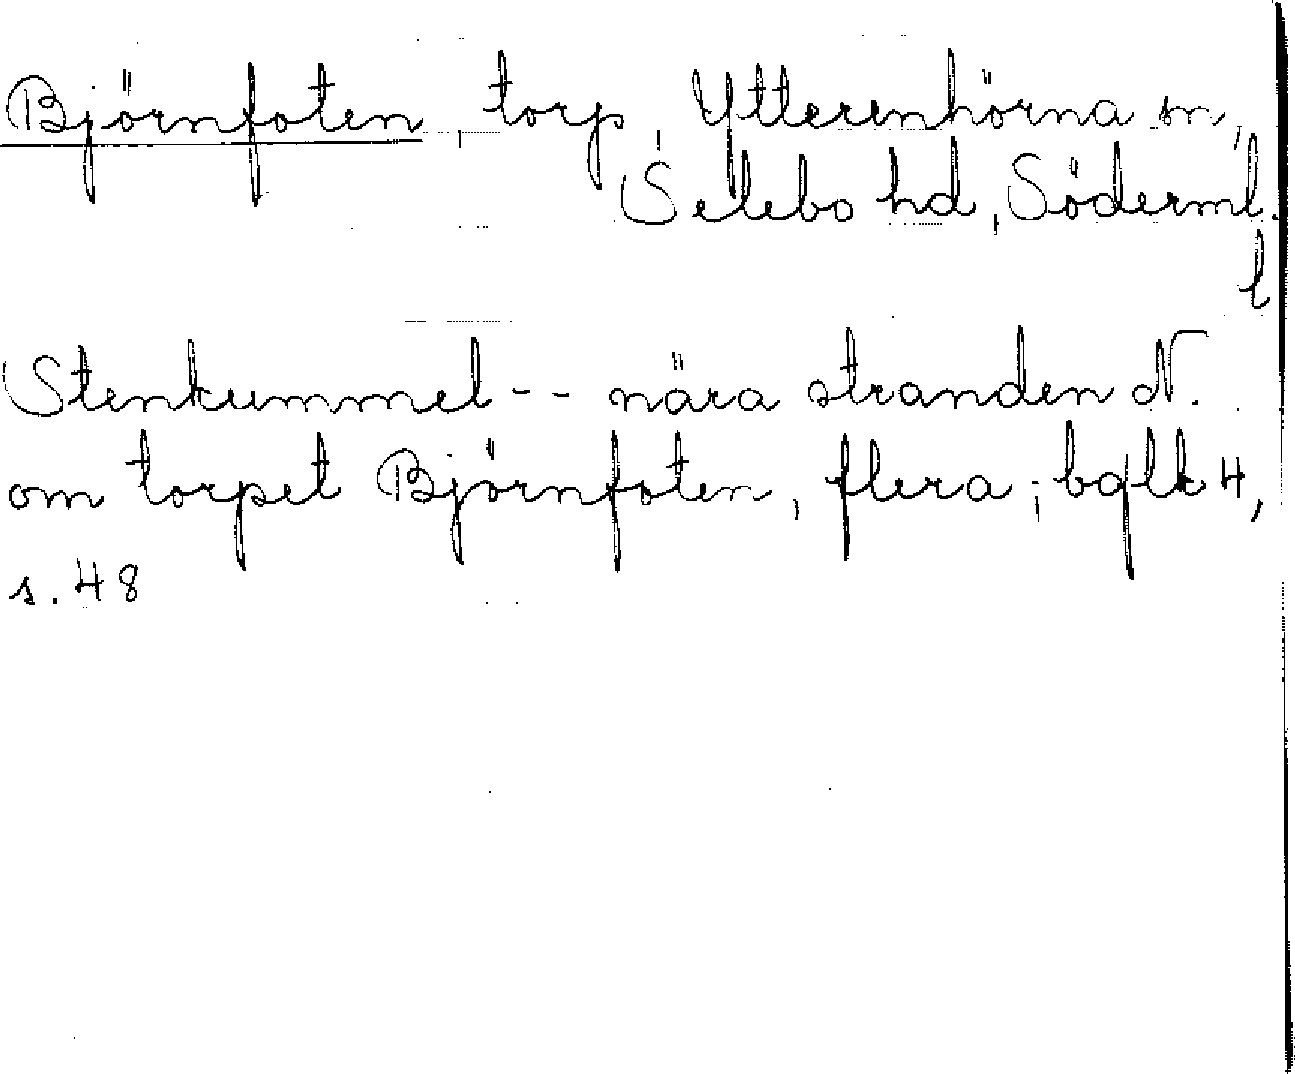 Björnfoten, torp, Ytterenhörna sn,
Selebo hd, Söderml.
l
Stenkummel -- nära stranden N.
om torpet Björnfoten, flera; bqlk 4,
s. 48